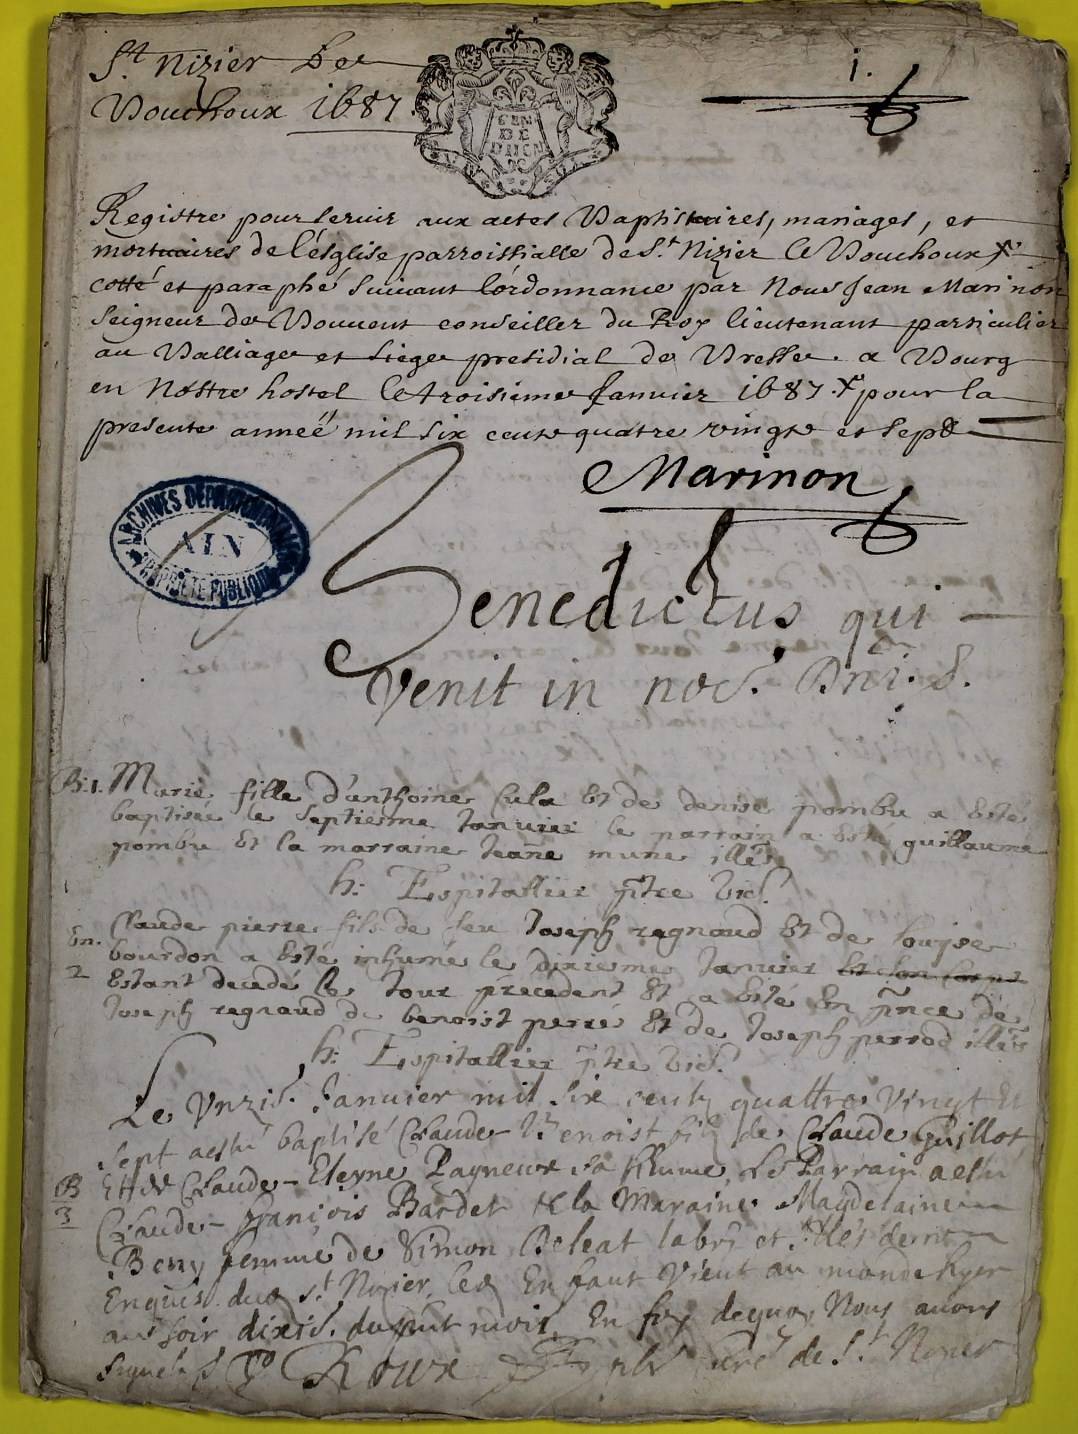 St. Nizier Le
Bouchoux 1687.
i.
GEN
DE
DIION
Registre pour servir aux actes Baptistaires, mariages, et
mortuaires de l'ésglise parroissialle de St. Nizier le Bouchoux
cotté et paraphé suivant l'ordonnance par Nous Jean Marinon
seigneur de Bouvent conseiller du Roy lieutenant particulier
au Balliage et siège presidial de Bresse. a Bourg
en Nostre hostel le troisieme Janvier 1687. pour la
presente anneé mil six cents quatre vingts et sept
Marinon
ARCHIVES DÉPARTEMENTALES
AIN
PROPRIÉTÉ PUBLIQUE
Benedictus qui
Venit in noe. Dni. 8.
B: 1. Marie fille d'anthoine Cula Et de denise pombu a Esté
baptisée le septiesme Janvier le parrain a Esté guillaume
pombu Et la marraine Jeañe mune illés
h: Espitallier p̃tre vic.
En. Claude pierre fils de feu Joseph regnaud Et de louyse
bourdon a Esté inhumé le dixiesme Janvier Et son corps
2 Estant decedé le Jour precedent Et a Esté En p̃nce de
Joseph regnaud de benoist perré Et de Joseph perrod illés
h: Espitallier p̃tre vic.
Le Unzie. Janvier mil six cents quattre Vingt Et
sept a esté baptisé Claude Benoist fils de Claude Guillot
B Et de Claude Eteyne Pagneux sa femme, Le Parrain a esté
3 Claude françois Bardet et la Maraine Magdelaine
Beny femme de Simon Beleat labr. et
St. Nizier, led. Enfant Vient au monde hyer
au soir dixie. du pnt mois, En foy dequoy Nous avons
signé Roux curé de St. Nizier